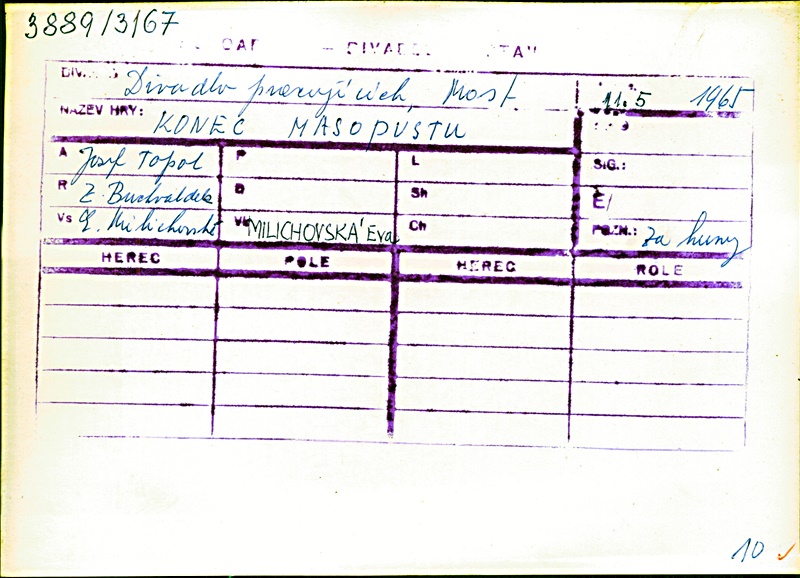 3889/3167
DIVADLO Divadlo pracujících, Most 11.5 1965
NÁZEV HRY: KONEC MASOPUSTU
A Josef Topol P L SIG.:
R Z. Buchvaldek D Sh Č/
Vs E. Milichovská Vk MILICHOVSKÁ Eva Ch POZN.: Za humny
HEREC ROLE HEREC ROLE
10